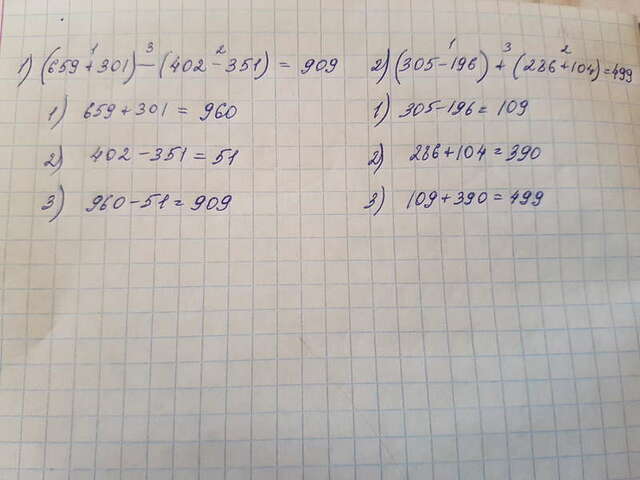 1) (659 + 301) — (402 - 351) = 909
1) 659 + 301 = 960
2) 402 - 351 = 51
3) 960 - 51 = 909
2) (305 - 196) + (286 + 104) = 499
1) 305 - 196 = 109
2) 286 + 104 = 390
3) 109 + 390 = 499